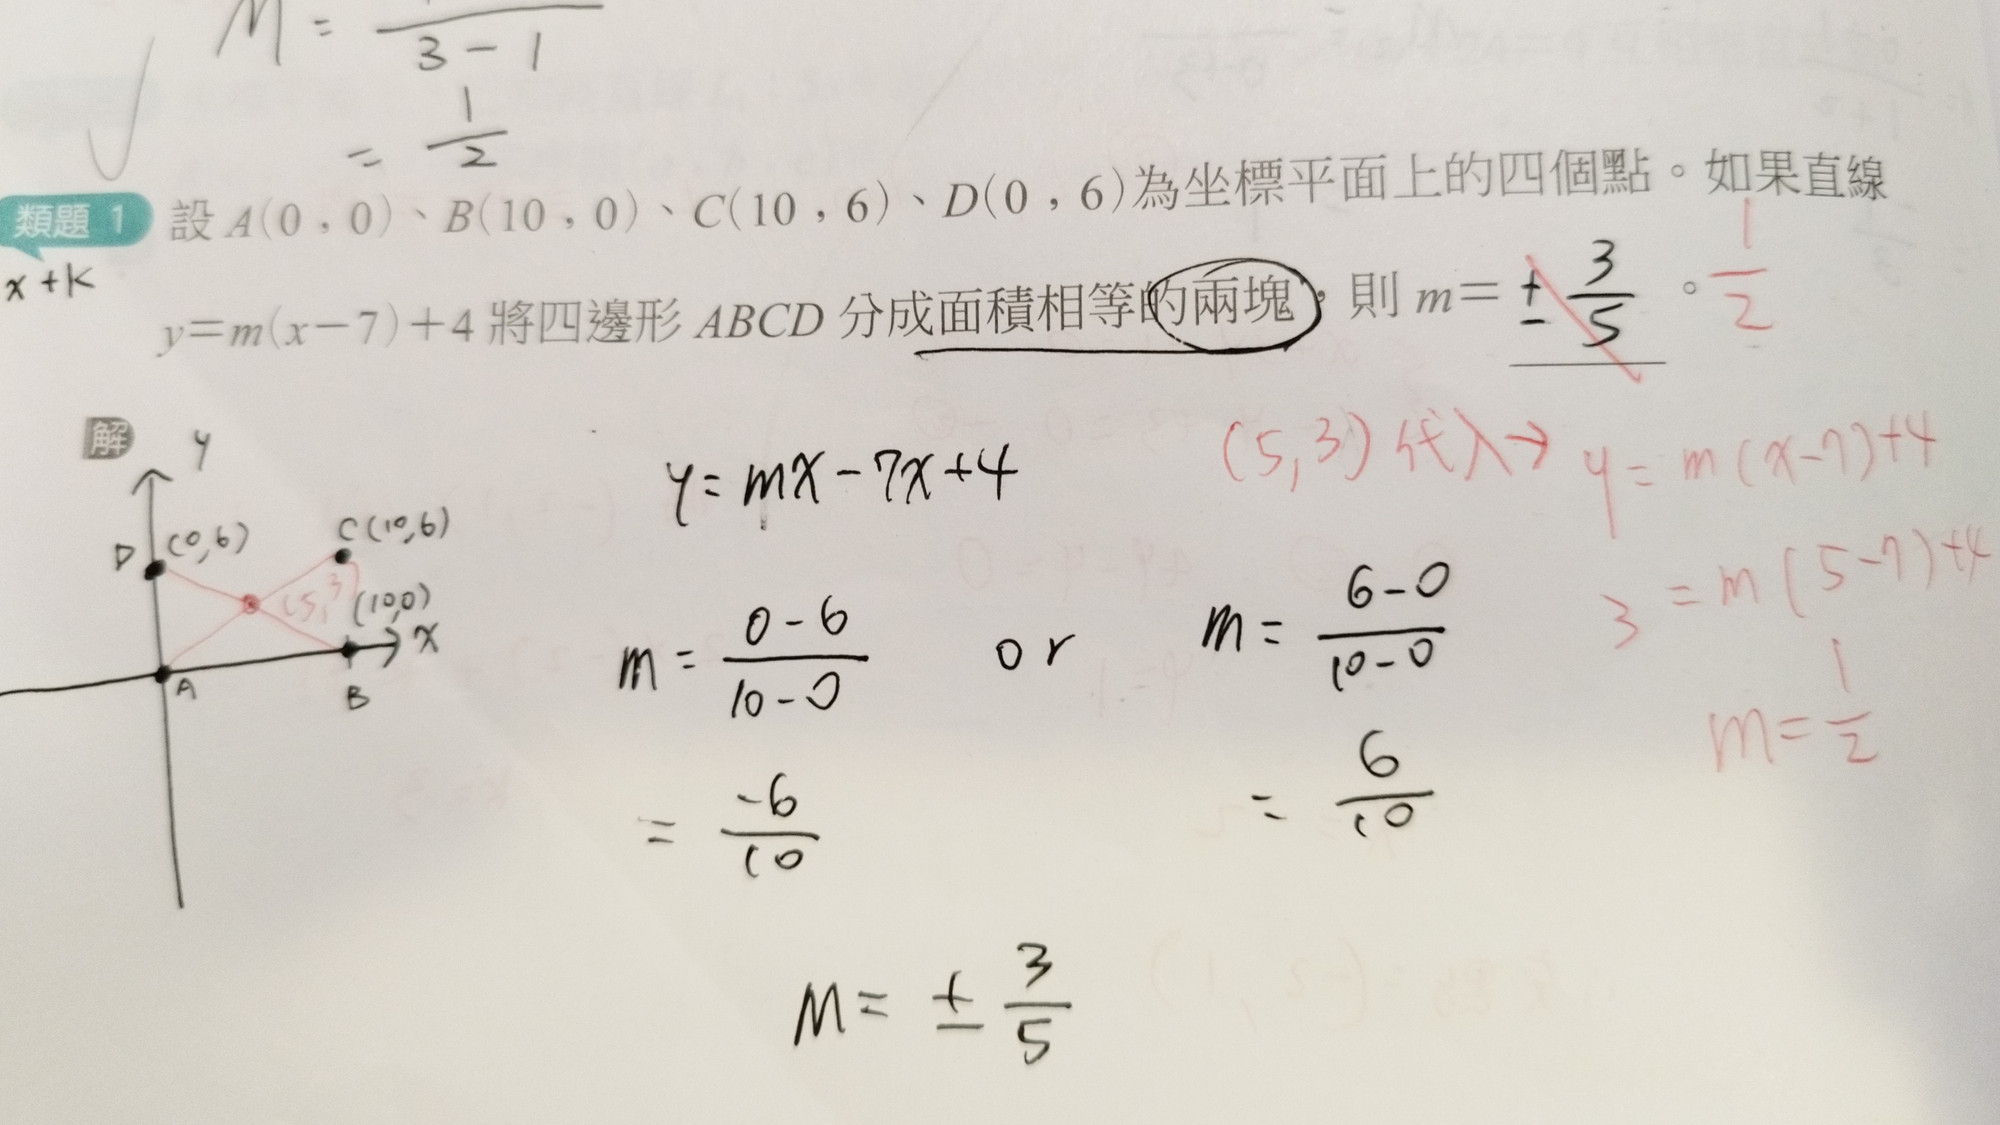 M =
3 - 1
= 1/2
類題 1 設 A(0，0)、B(10，0)、C(10，6)、D(0，6)為坐標平面上的四個點。如果直線
x+k
y=m(x-7)+4 將四邊形 ABCD 分成面積相等的兩塊，則 m= ± 3/5 。 1/2
解
y
D (0,6)
C(10,6)
(5,3)
(10,0)
x
A
B
y = mx - 7x + 4
m = (0-6)/(10-0) or m = (6-0)/(10-0)
= -6/10 = 6/10
M = ± 3/5
(5,3) 代入→ y = m(x-7)+4
3 = m(5-7)+4
m = 1/2